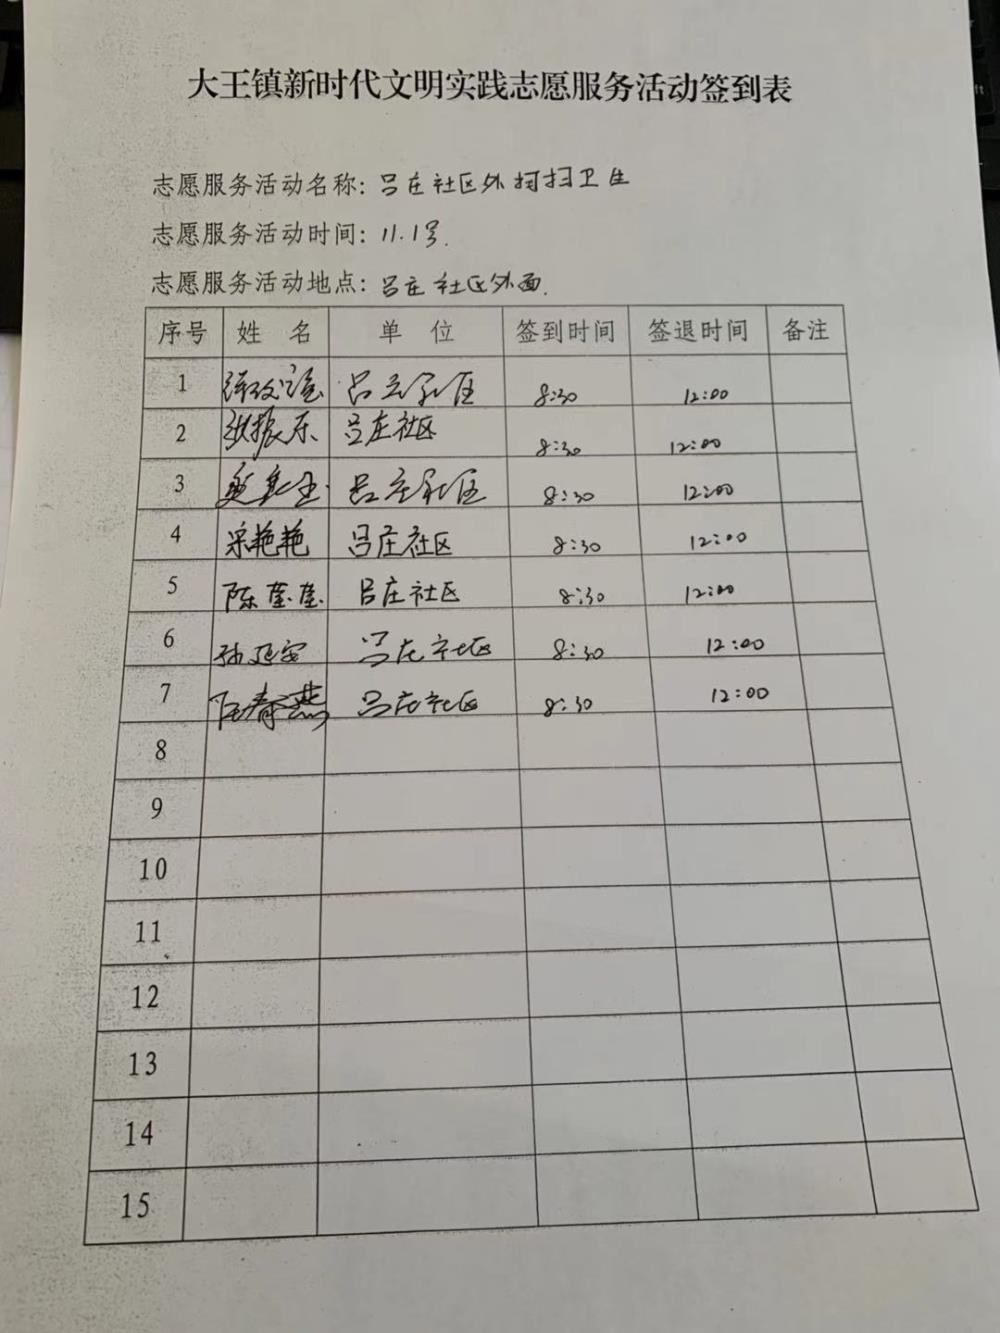 大王镇新时代文明实践志愿服务活动签到表
志愿服务活动名称：吕庄社区外打扫卫生
志愿服务活动时间：11.1号.
志愿服务活动地点：吕庄社区外面.
序号 姓 名 单 位 签到时间 签退时间 备注
1 吕庄社区 8:30 12:00
2 张振东 吕庄社区 8:30 12:00
3 吕庄社区 8:30 12:00
4 宋艳艳 吕庄社区 8:30 12:00
5 陈莹莹 吕庄社区 8:30 12:00
6 孙延安 吕庄社区 8:30 12:00
7 春燕 吕庄社区 8:30 12:00
8
9
10
11
12
13
14
15